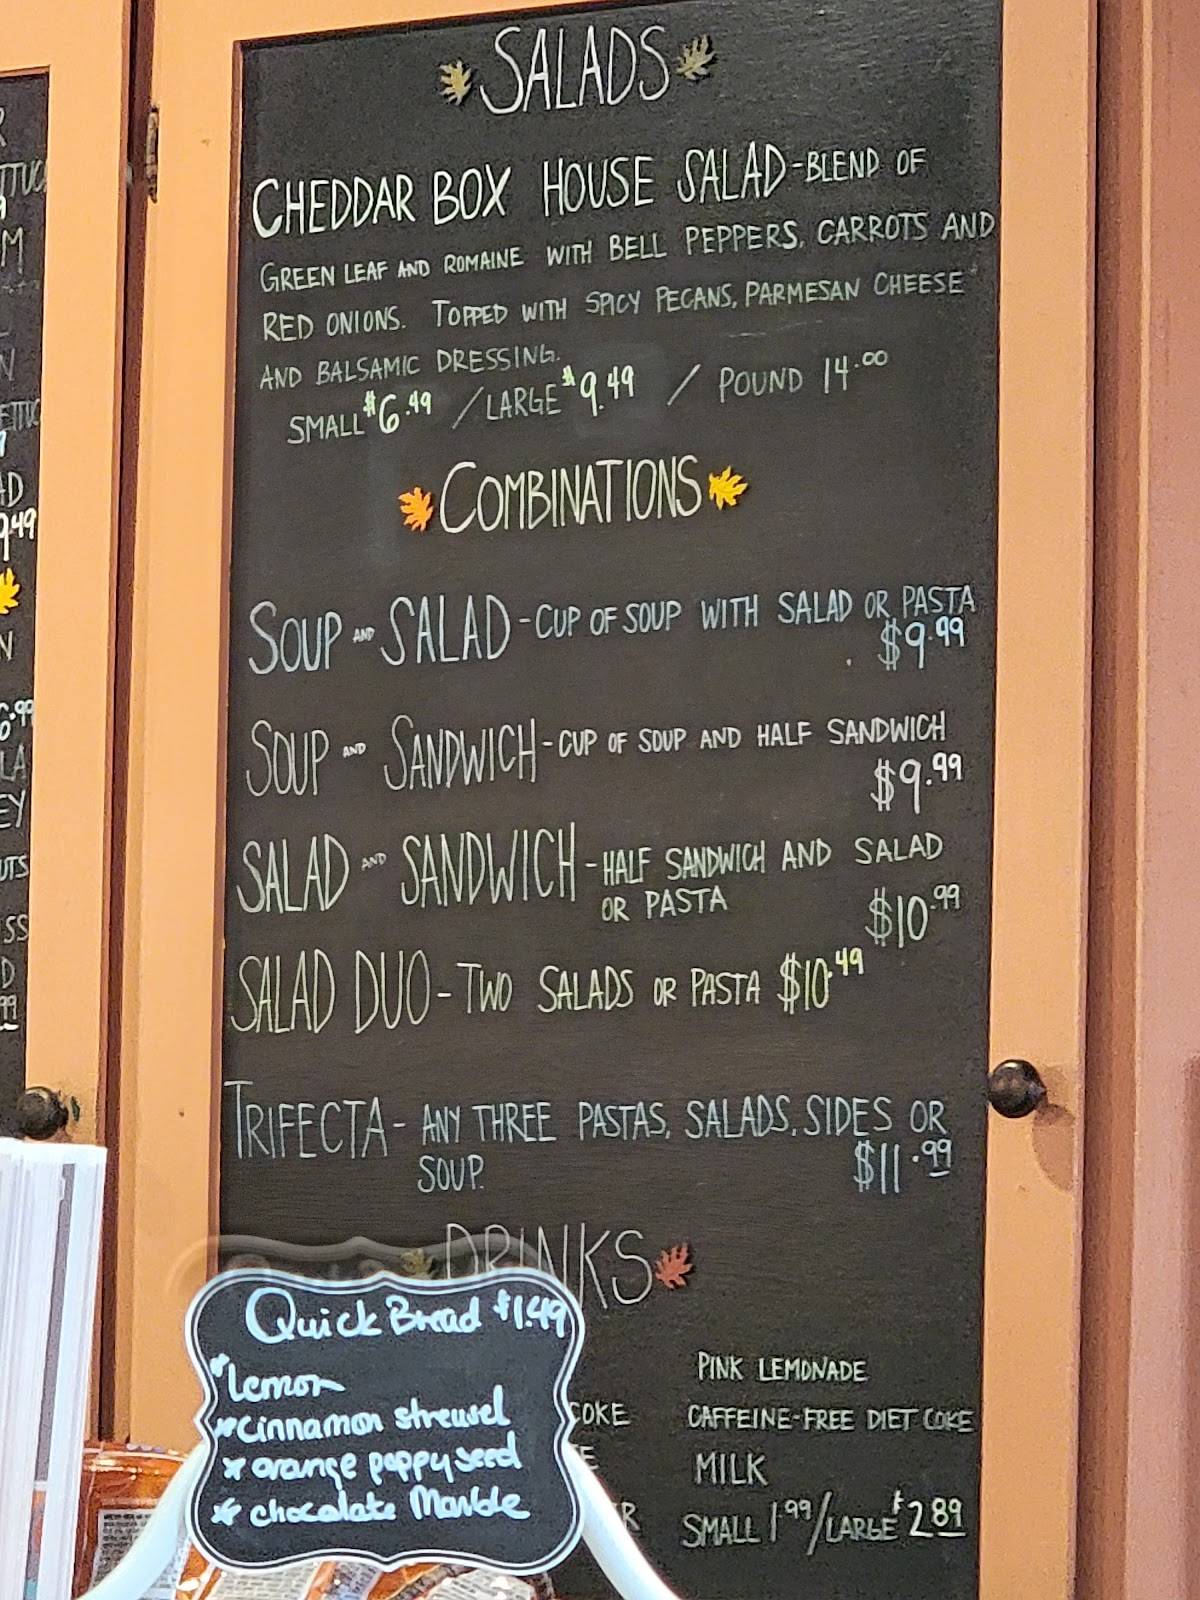 SALADS
CHEDDAR BOX HOUSE SALAD-BLEND OF
GREEN LEAF AND ROMAINE WITH BELL PEPPERS, CARROTS AND
RED ONIONS. TOPPED WITH SPICY PECANS, PARMESAN CHEESE
AND BALSAMIC DRESSING.
SMALL $6.49 / LARGE $9.49 / POUND 14.00
COMBINATIONS
SOUP AND SALAD-CUP OF SOUP WITH SALAD OR PASTA
$9.99
SOUP AND SANDWICH-CUP OF SOUP AND HALF SANDWICH
$9.99
SALAD AND SANDWICH-HALF SANDWICH AND SALAD
OR PASTA $10.99
SALAD DUO-TWO SALADS OR PASTA $10.49
TRIFECTA-ANY THREE PASTAS, SALADS, SIDES OR
SOUP. $11.99
DRINKS
PINK LEMONADE
COKE CAFFEINE-FREE DIET COKE
MILK
SMALL 1.99/LARGE $2.89
Quick Bread $1.49
*Lemon
*Cinnamon streusel
* orange poppyseed
* chocolate Marble
9.49